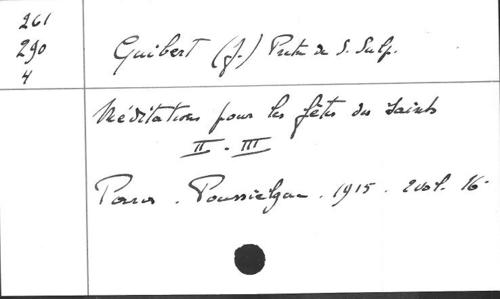 261
290
4
Guibert (J.) Prêtre de S. Sulp.
Méditations pour les fêtes des Saints
II - III
Paris. Poussielgue. 1915. 2 vol. 16-